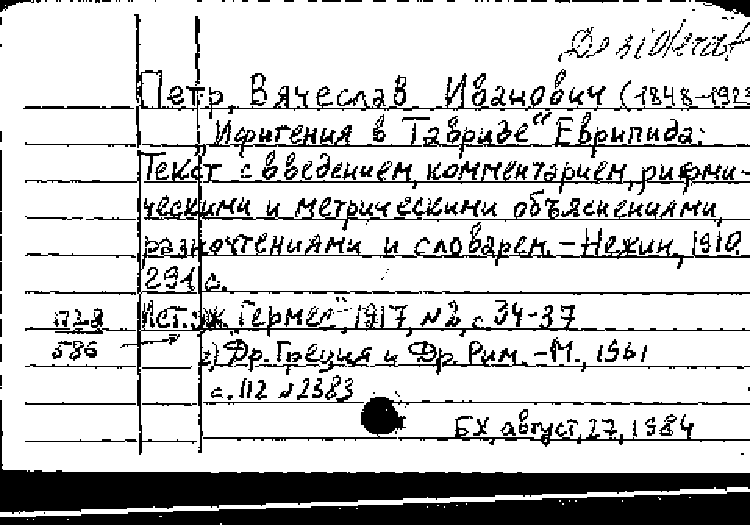 Desiderat
Петр, Вячеслав Иванович (1848-1923
„Ифигения в Тавриде" Еврипида:
Текст с введением, комментарием, рифми-
ческими и метрическими объяснениями,
разночтениями и словарем. – Нежин, 1910.
291 с.
Ист.: ж. "Гермес", 1917, №2, с 34-37
586
2) "Др. Греция и Др. Рим. – М., 1961
с. 112 №2383
БХ, август, 27, 1984